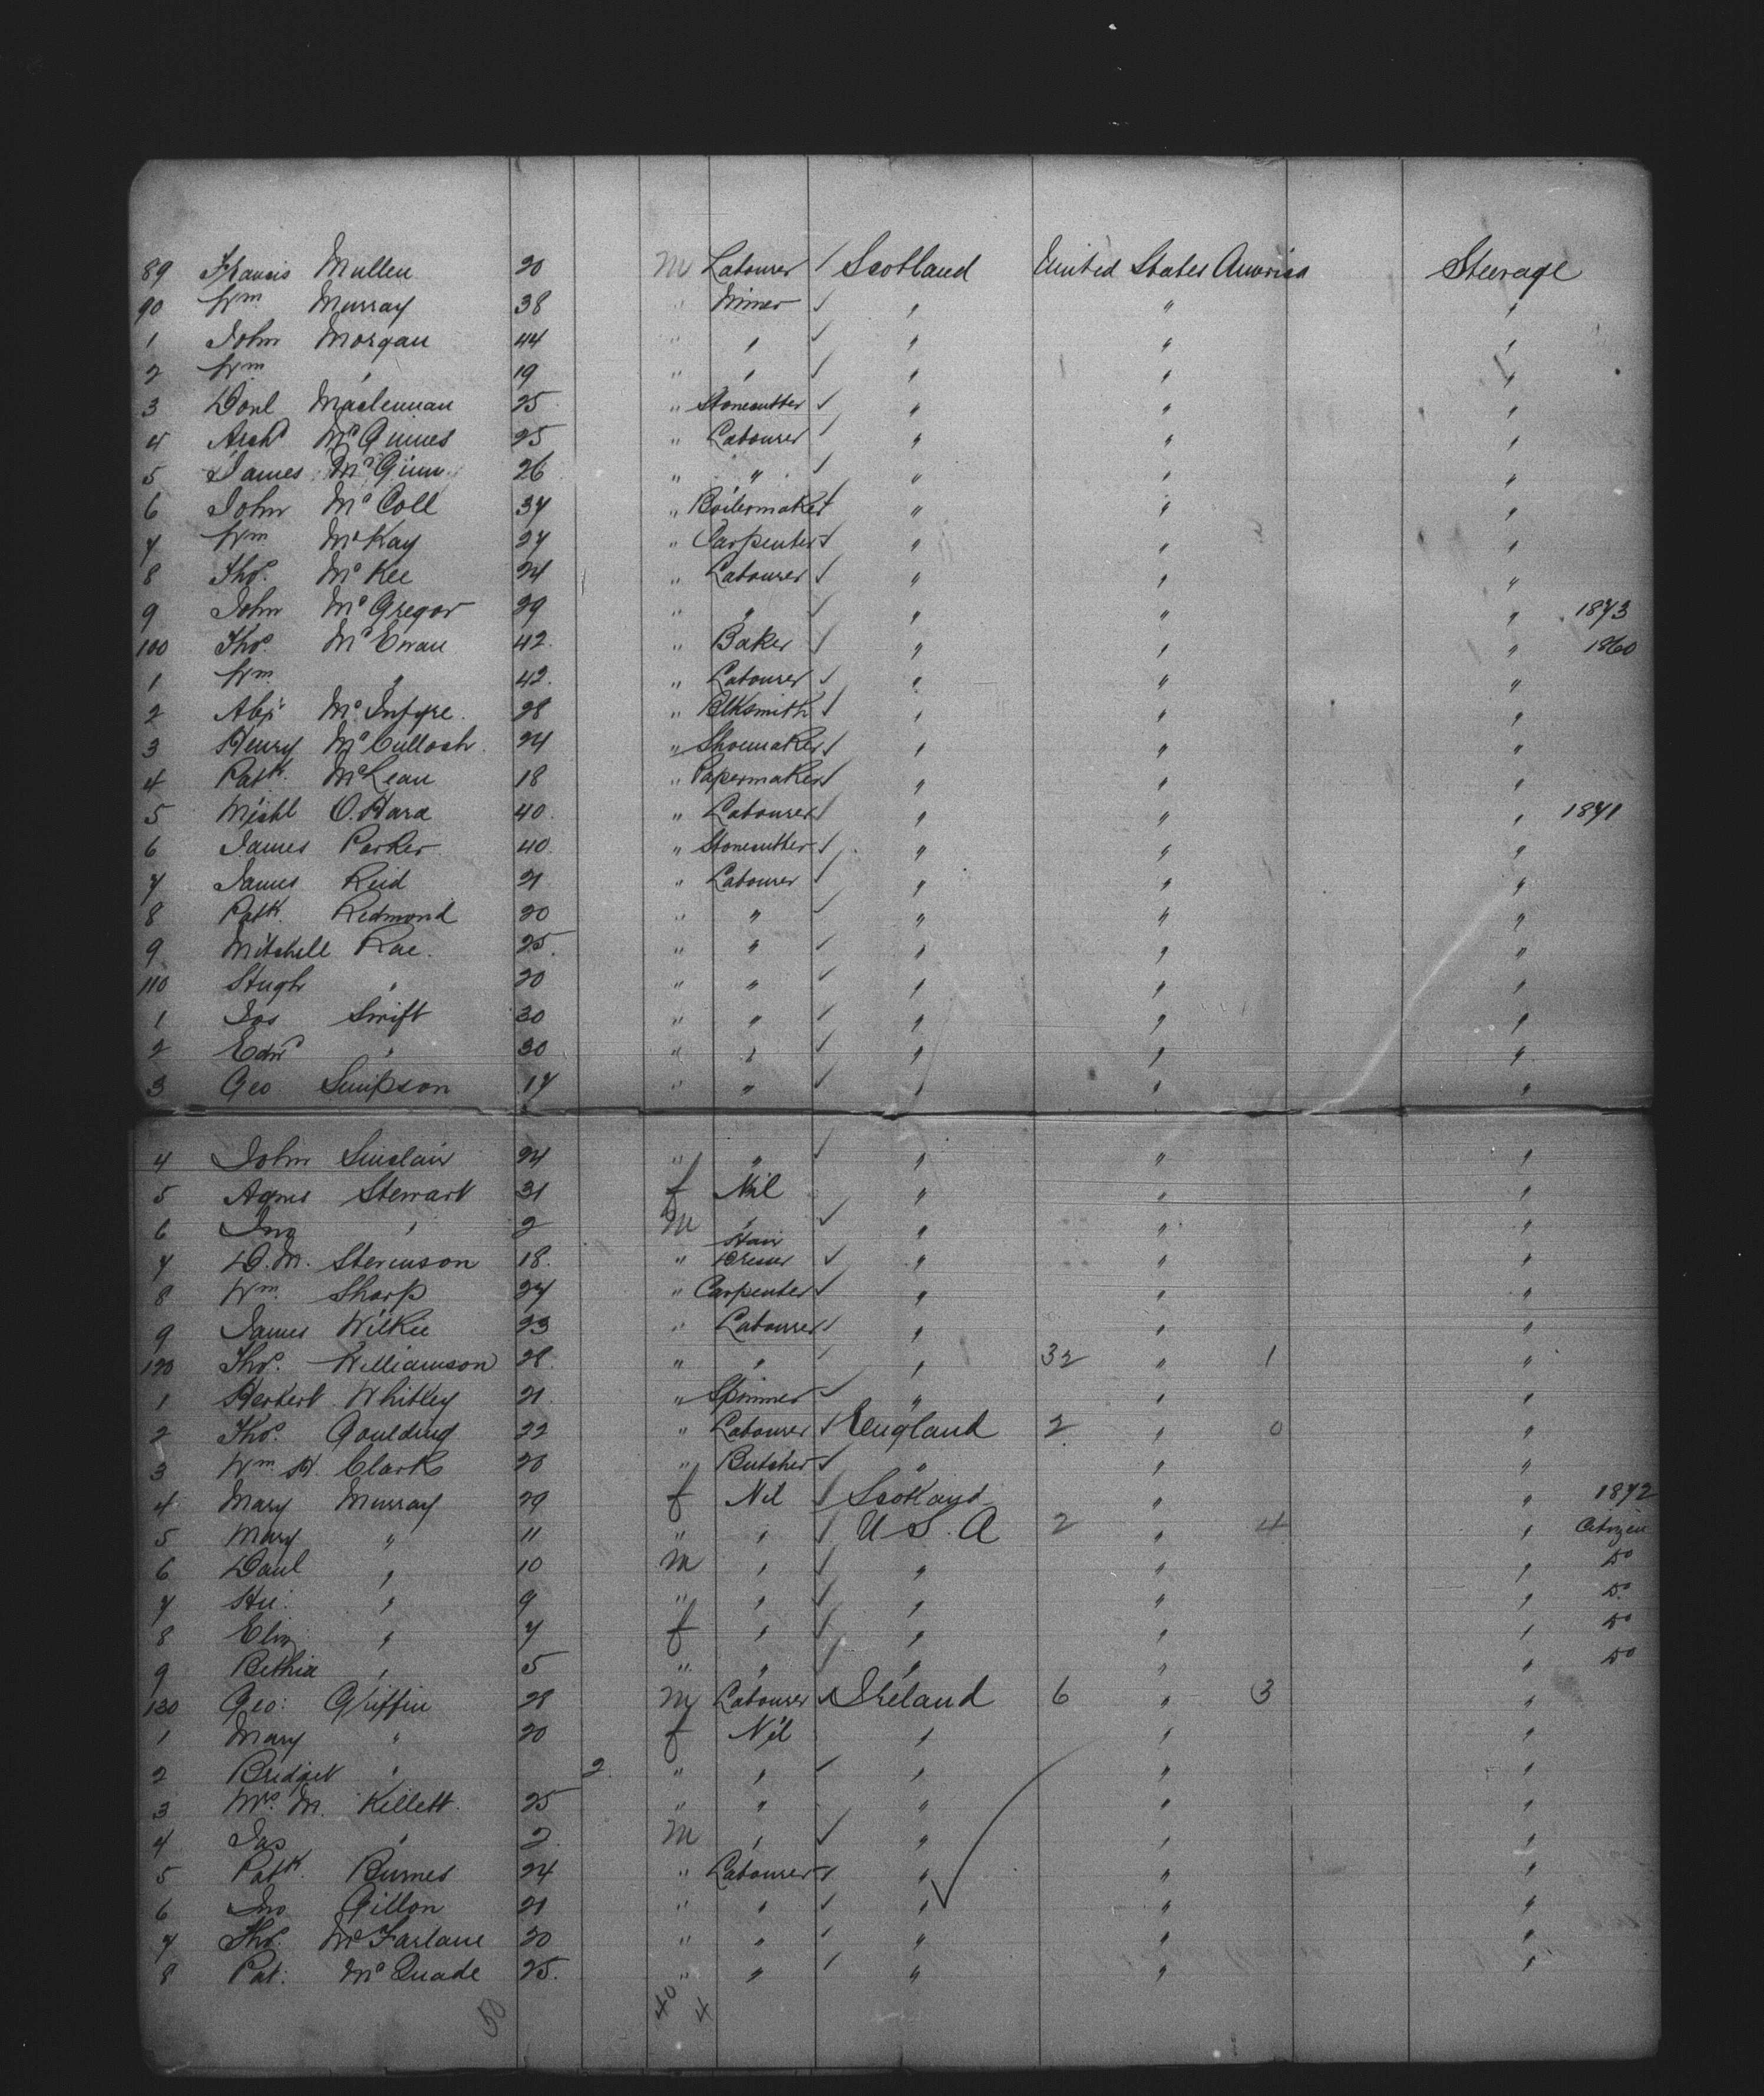 89 Francis Mullen 20 M Labourer ✓ Scotland United States America Steerage
90 Wm Murray 38 " Miner ✓ " " "
1 John Morgan 44 " " ✓ " " "
2 Wm " 19 " " ✓ " " "
3 Donl Maclennan 25 " Stonecutter ✓ " " "
4 Archd McGinnes 25 " Labourer ✓ " " "
5 James McGinn 26 " " ✓ " " "
6 John McColl 37 " Boilermaker ✓ " " "
7 Wm McKay 27 " Carpenter ✓ " " "
8 Thos. McKee 24 " Labourer ✓ " " "
9 John McGregor 29 " " ✓ " " " 1873
100 Thos. McEwan 42 " Baker ✓ " " " 1860
1 Wm " 42 " Labourer ✓ " " "
2 McIntyre 28 " Blksmith ✓ " " "
3 Henry McCulloch 24 " Shoemaker ✓ " " "
4 Patk. McLean 18 " Papermaker ✓ " " "
5 Michl O.Hara 40 " Labourer ✓ " " " 1871
6 James Parker 40 " Stonecutter ✓ " " "
7 James Reid 21 " Labourer ✓ " " "
8 Patk. Redmond 20 " " ✓ " " "
9 Mitchell Rae. 25 " " ✓ " " "
110 Hugh " 20 " " ✓ " " "
1 Jas Swift 30 " " ✓ " " "
2 Edwd " 30 " " ✓ " " "
3 Geo Simpson 17 " " ✓ " " "
4 John Sinclair 24 " " ✓ " " "
5 Agnes Stewart 31 f Nil " " "
6 Jno " 2 M " ✓ " " "
7 D.M. Stevenson 18 " Hair Dresser ✓ " " "
8 Wm. Sharp 27 " Carpenter ✓ " " "
9 James Wilkie 23 " Labourer ✓ " " "
120 Thos. Williamson 28 " " ✓ " 32 " 1 "
1 Herbert Whitley 21 " Spinner ✓ " " "
2 Thos. Goulding 22 " Labourer ✓ England 2 " 0 "
3 Wm. H. Clark 28 " Butcher ✓ " " "
4 Mary Murray 29 f Nil ✓ Scotland " " 1872
5 Mary " 11 " " ✓ U S. A 2 " 4 " Citizen
6 Danl " 10 M " ✓ " " " Do
7 " 9 " " ✓ " " " Do
8 Eliz " 7 f " ✓ " " " Do
9 Bethia " 5 " " ✓ " " " Do
130 Geo: Griffin 28 M Labourer ✓ Ireland 6 " 3 "
1 Mary " 20 f Nil " " "
2 Bridget " 2 " " ✓ " " "
3 Mrs. M. Killett 25 " " " " "
4 Jas " 2 M " ✓ " " "
5 Patk. Burnes 24 " Labourer ✓ " " "
6 Jno Gillon 21 " " ✓ " " "
7 Thos. McFarlane 20 " " ✓ " " "
8 Pat. McQuade 25 " " ✓ " " "
50 40 4